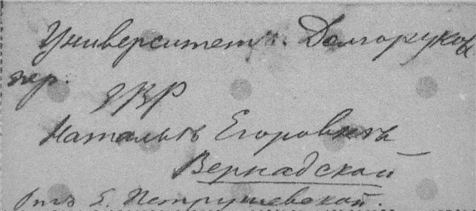 Университетъ. Долгоруков
пер.
ЕВР
Натальѣ Егоровнѣ
Вернадской
Отъ Е. Петрушевской.